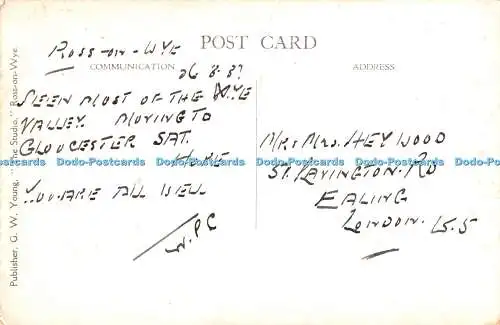 Ross-on-Wye
POST CARD
COMMUNICATION
ADDRESS
SEEN MOST OF THE WYE
VALLEY MOVING TO
GLOUCESTER SAT.
HOPE
YOU ARE ALL WELL
W.P.C
MR & MRS. HEYWOOD
ST. KAVINGTON. RD
EALING
LONDON.
Publisher, G. W. Young, "The Studio," Ross-on-Wye.
Dodo-Postcards Dodo-Postcards Dodo-Postcards Dodo-Postcards Dodo-Postcards